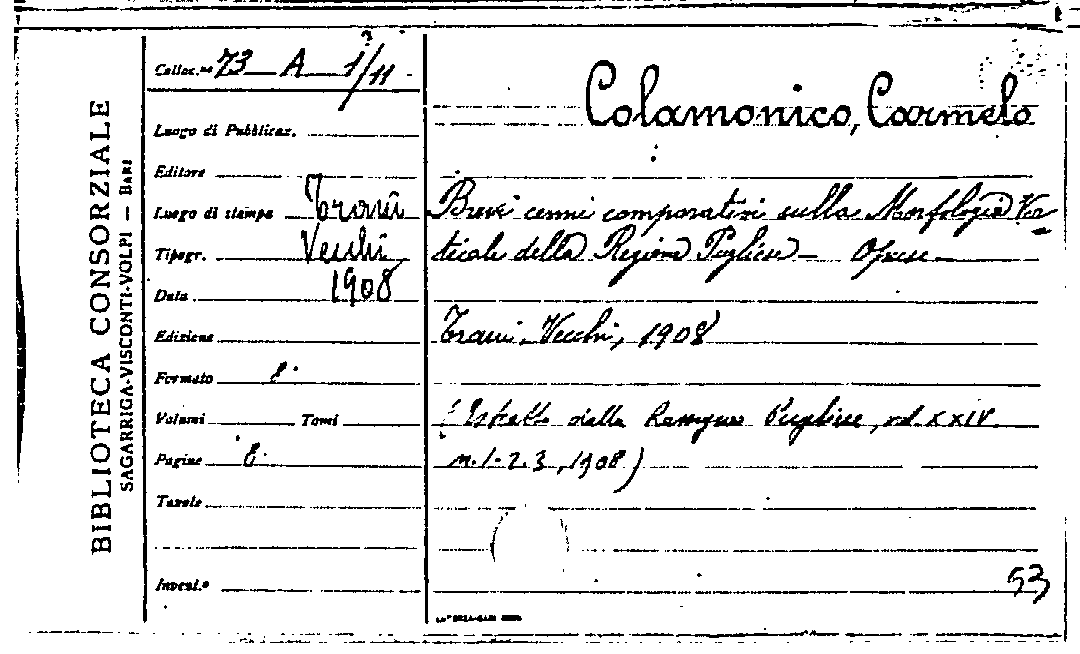 BIBLIOTECA CONSORZIALE
SAGARRIGA-VISCONTI-VOLPI — BARI
Colloc.ne 73 A 1/11
Luogo di Pubblicaz.
Editore
Luogo di stampa Trani
Tipogr. Vecchi
Data 1908
Edizione
Formato 8°
Volumi Tomi
Pagine 8.
Tavole
Invent.°
Colamonico, Carmelo
Brevi cenni comparativi sulla Morfologia Ver-
ticale della Regione Pugliese —
Trani, Vecchi, 1908
(Estratto dalla Rassegna Pugliese, vol. XXIV.
n. 1-2-3, 1908)
53